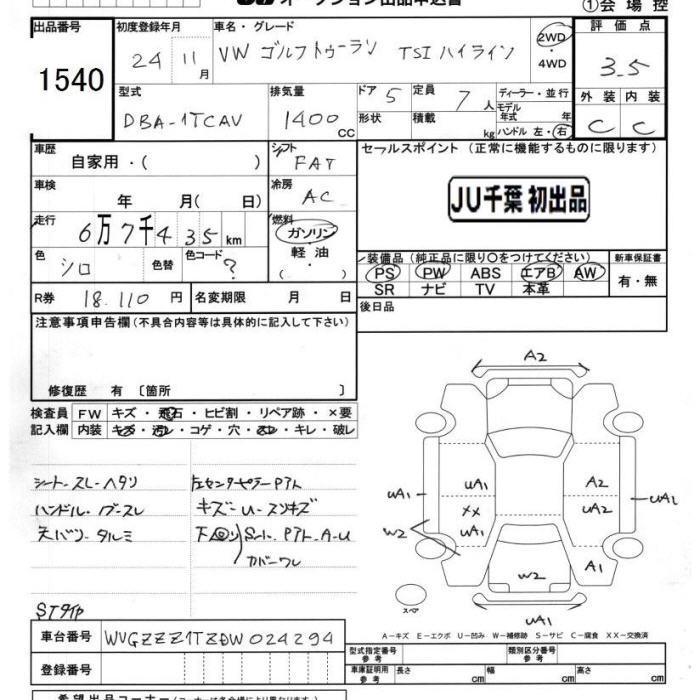 オークション出品申込書
①会場控
出品番号 1540
初度登録年月 24 11月
車名・グレード VW ゴルフトゥーラン TSI ハイライン
2WD ・ 4WD
評価点 3.5
外装 内装
C C
型式 DBA-1TCAV
排気量 1400 CC
ドア 5 定員 7 人
形状 積載 kg
ディーラー・並行
モデル年式 年
ハンドル 左・右
車歴 自家用・( )
シフト FAT
セールスポイント (正常に機能するものに限ります)
JU千葉 初出品
車検 年 月( 日)
冷房 AC
走行 6万7千435km
燃料 ガソリン・軽油・( )
色 シロ 色替 色コード ?
装備品 (純正品に限り○をつけてください) 新車保証書
PS PW ABS エアB AW 有・無
SR ナビ TV 本革
R券 18.110円 名変期限 月 日
後日品
注意事項申告欄(不具合内容等は具体的に記入して下さい)
修復歴 有 〔箇所 〕
検査員 FW キズ・飛石・ヒビ割・リペア跡・×要
記入欄 内装 キズ・汚レ・コゲ・穴・スレ・キレ・破レ
シートースレ-ヘタリ
ハンドル-
天バリ-タルミ
キズ-U-スリキズ
カバーワレ
A2
UA1 UA1 A2 UA2
XX UA2
W2 UA1 A1
W2
スペア
UA1
A-キズ E-エクボ U-凹み W-補修跡 S-サビ C-腐食 XX-交換済
車台番号 WVGZZZ1TZDW024294
型式指定番号 参考 類別区分番号 参考
登録番号
車庫証明用 参考 長さ cm 幅 cm 高さ cm
希望出品コーナー